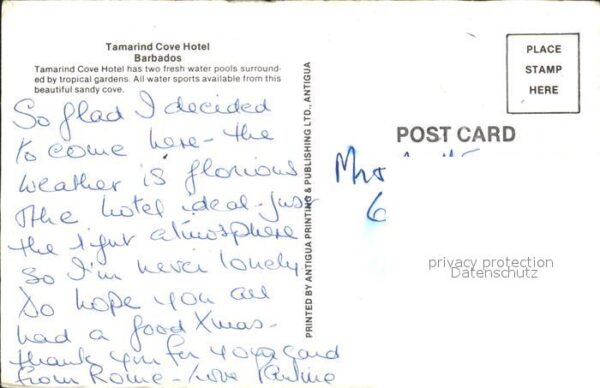 Tamarind Cove Hotel
Barbados
Tamarind Cove Hotel has two fresh water pools surround-
ed by tropical gardens. All water sports available from this
beautiful sandy cove.
So glad I decided
to come here - the
weather is glorious
The hotel ideal - just
the right atmosphere
So I'm never lonely
Do hope you all
had a good Xmas -
thank you for your card
from Rome - Love Pauline
PRINTED BY ANTIGUA PRINTING & PUBLISHING LTD., ANTIGUA
PLACE
STAMP
HERE
POST CARD
Mrs
6
privacy protection
Datenschutz